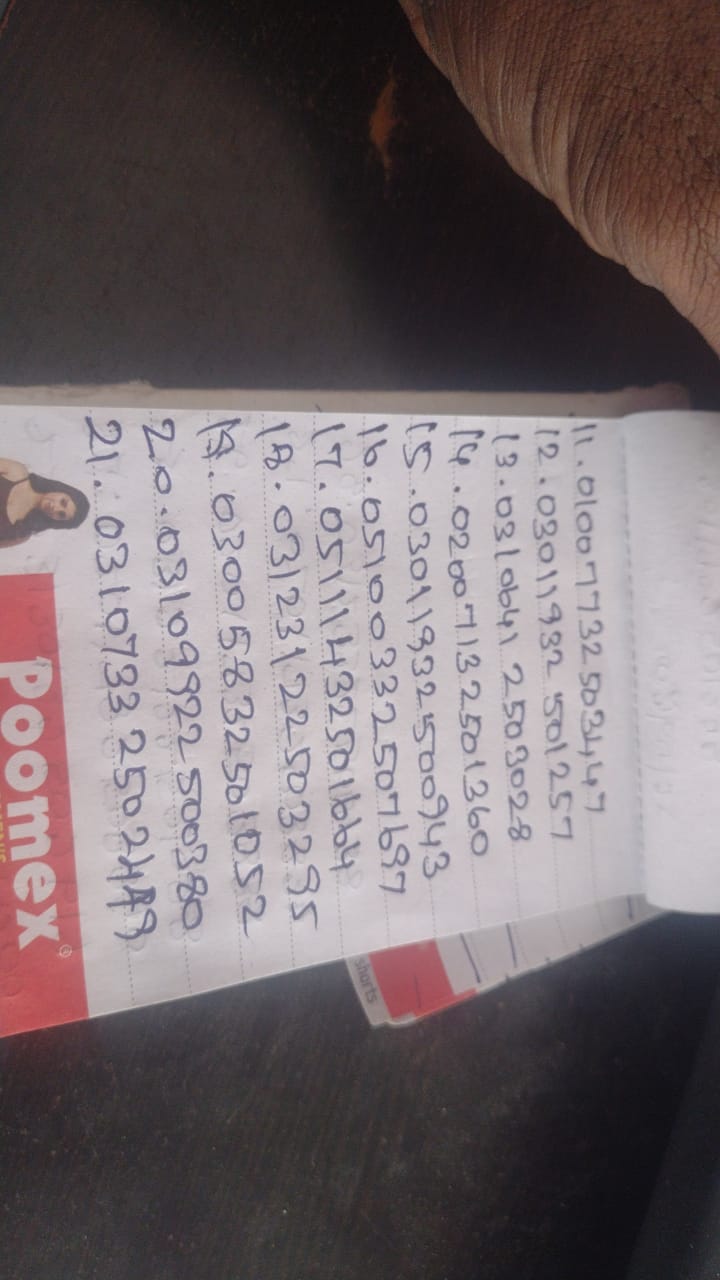 11.010077325034​47
12.03011932 501257
13.0310641 2503028
14.02007132501360
15.03011932500943
16.05100332507697
17.05111432501664
18.03123122503295
19.03005832501052
20.03109922500380
21.0310733 2502449
poomex®
shorts